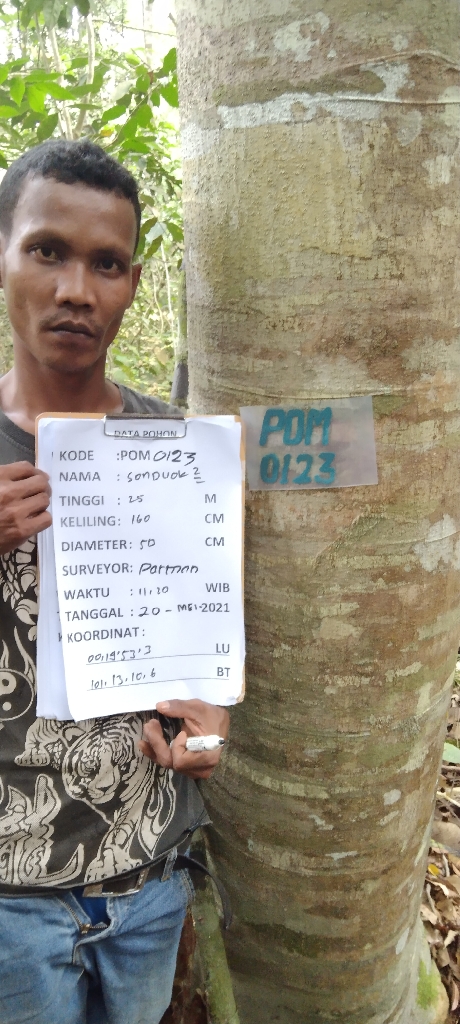 DATA POHON
KODE : POM 0123
NAMA : sonduok 2
TINGGI : 25 M
KELILING : 160 CM
DIAMETER : 50 CM
SURVEYOR : Parman
WAKTU : 11.20 WIB
TANGGAL : 20 - MEI-2021
KOORDINAT :
00,19'53'3 LU
101,13,10,6 BT
POM
0123